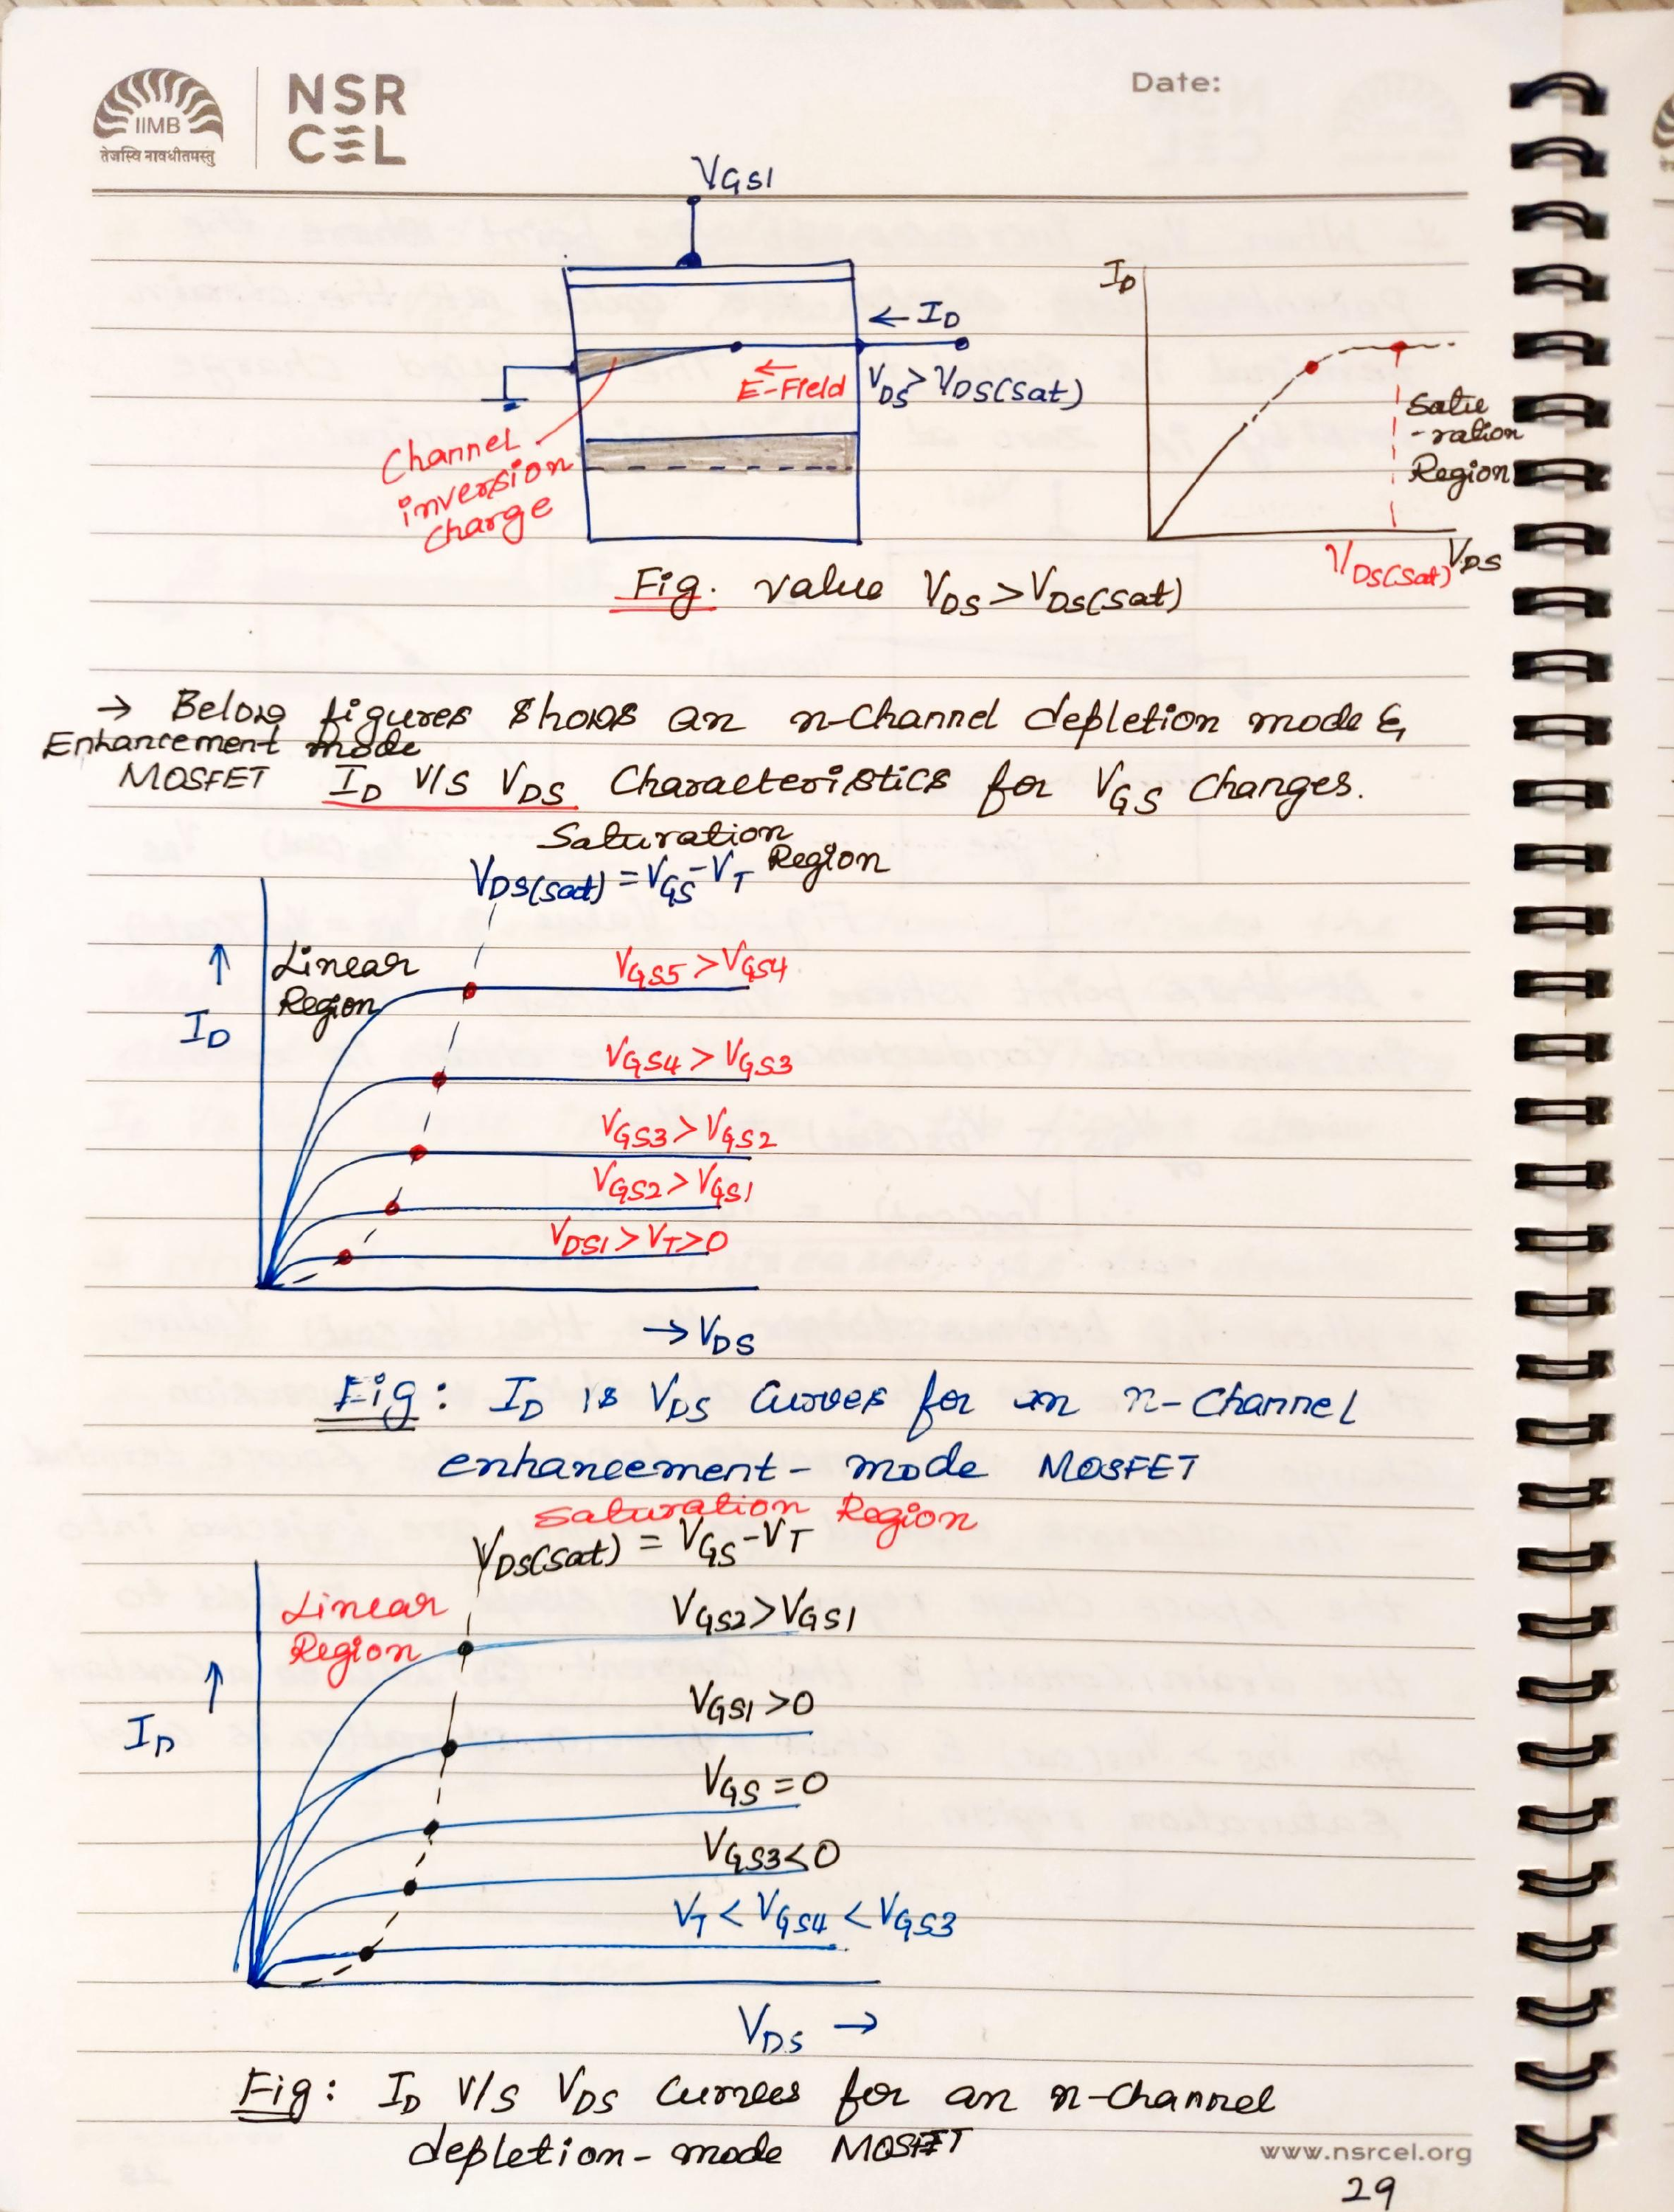 IIMB
तेजस्वि नावधीतमस्तु
NSR
CEL
Date:
VGS1
← ID
E-Field
VDS > VDS(sat)
Channel
inversion
charge
ID
Satu
-ration
Region
VDS(sat)
VDS
Fig. value VDS > VDS(sat)
→ Below figures shows an n-channel depletion mode &
Enhancement mode
MOSFET ID V/S VDS Characteristics for VGS changes.
Saturation
Region
VDS(sat) = VGS - VT
Linear
Region
↑
ID
VGS5 > VGS4
VGS4 > VGS3
VGS3 > VGS2
VGS2 > VGS1
VDS1 > VT > 0
→ VDS
Fig: ID is VDS Curves for an n-channel
enhancement- mode MOSFET
Saturation Region
VDS(sat) = VGS - VT
Linear
Region
↑
ID
VGS2 > VGS1
VGS1 > 0
VGS = 0
VGS3 < 0
VT < VGS4 < VGS3
VDS →
Fig: ID V/S VDS Curves for an n-channel
depletion- mode MOSFET
www.nsrcel.org
29